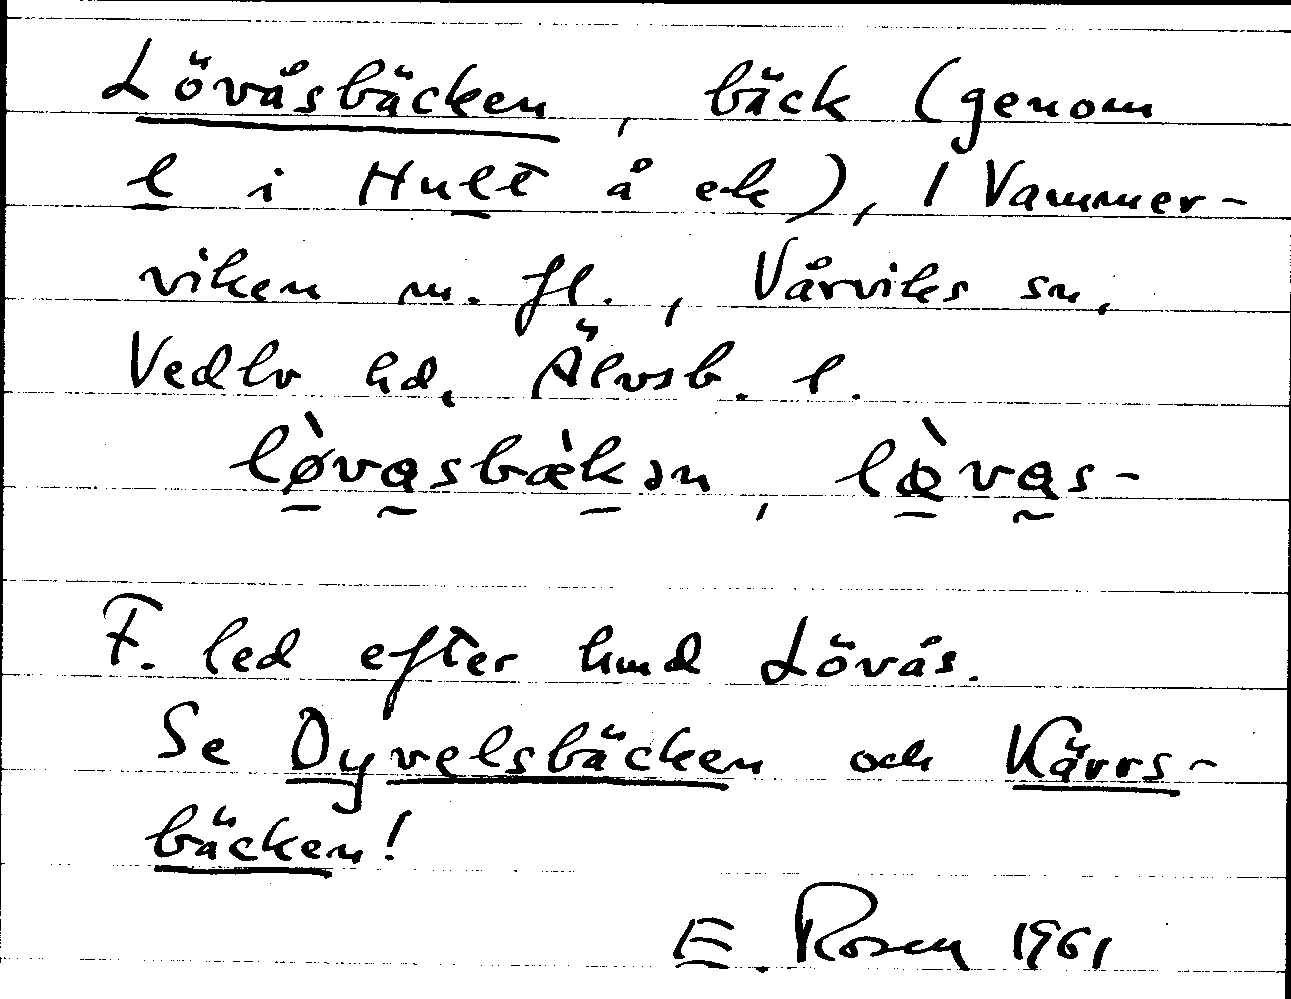 Lövåsbäcken, bäck (genom
l i Hult å ek), 1 Vammer-
viken m. fl., Vårviks sn,
Vedbo hd, Älvsb. l.
lø̀vasbæ̀kən, læ̀vas-
F. led efter hmd Lövås.
Se Dyvelsbäcken och Kärrs-
bäcken!
E. Rosen 1961